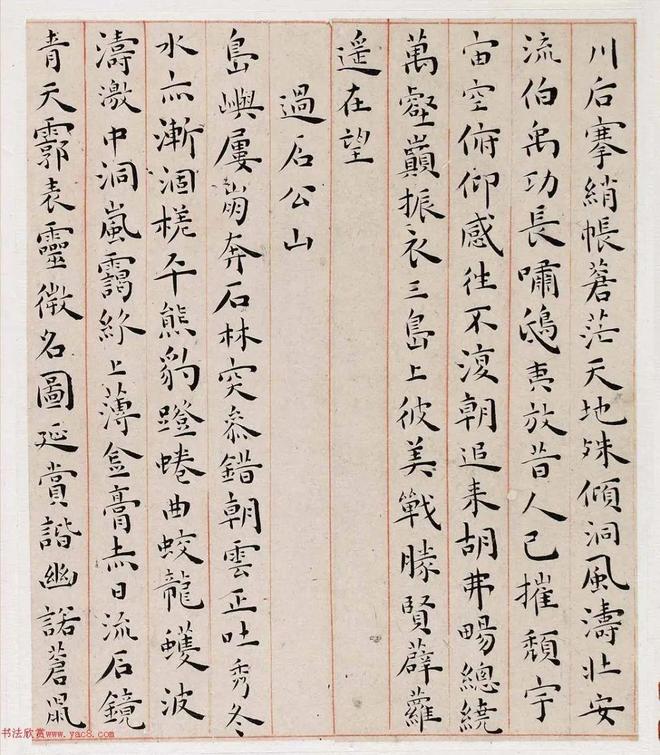 川后搴綃帳蒼茫天地殊傾洞風濤壯安
流伯禹功長嘯鴟夷放昔人已摧頹宇
宙空俯仰感往不復朝追来胡弗暢總繞
萬壑巔振衣三島上彼美戰勝賢薜蘿
遥在望
過石公山
島嶼屢崩奔石林突叅錯朝雲正吐秀冬
水亦漸涸槎平熊豹蹬蜷曲蛟龍蠖波
濤激中洞嵐靄綠上薄金膏赤日流石鏡
青天霩表靈徵名圖延賞諧幽諾蒼鼠
书法欣赏www.yac8.com